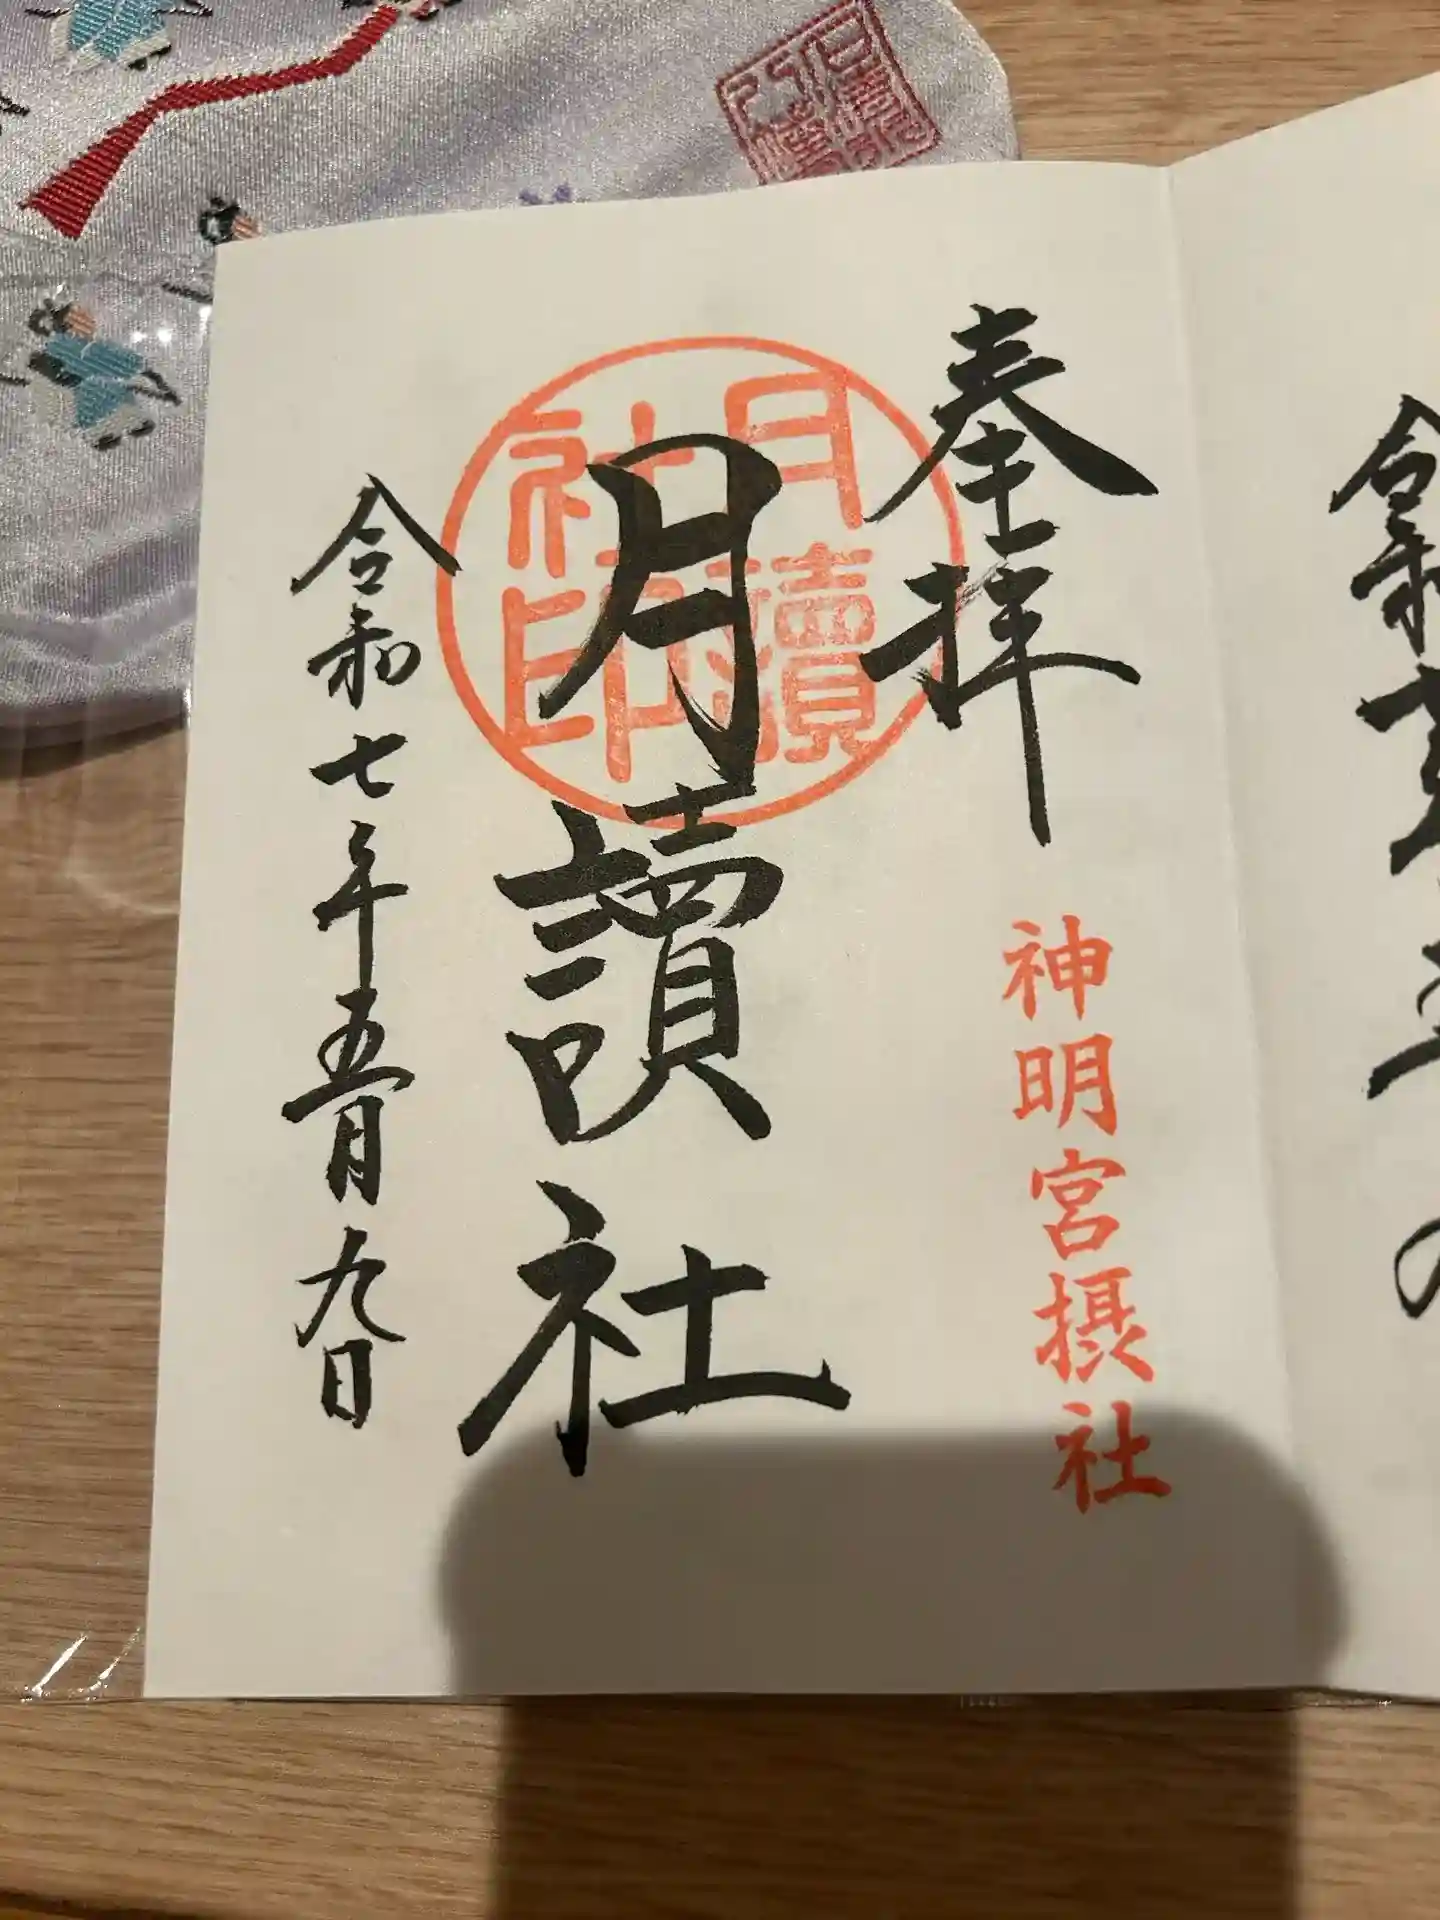 奉拝
神明宮摂社
月讀社
月讀社印
令和七年五月九日
令和